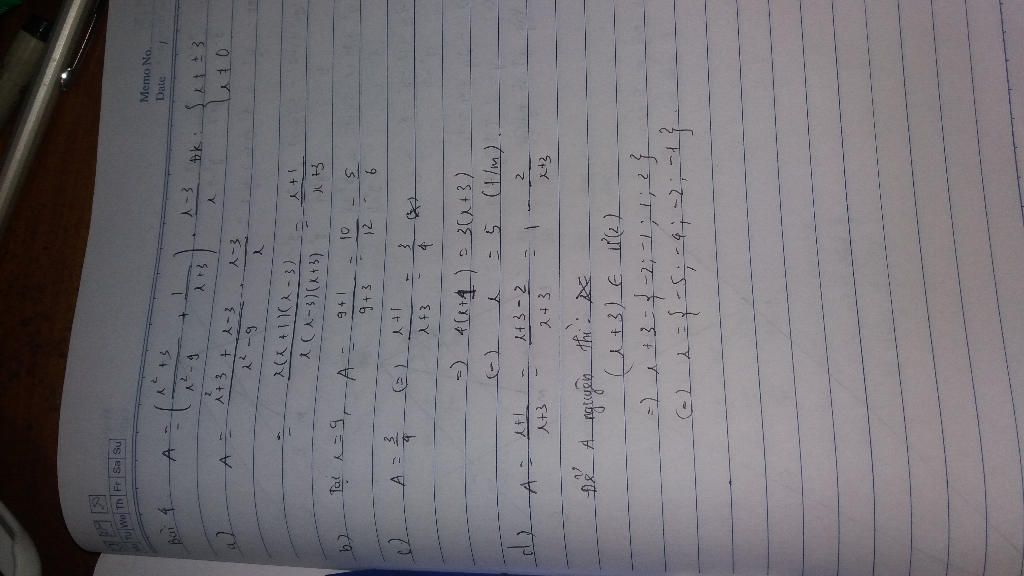 Memo No.
Date /
Mo Tu We Th Fr Sa Su
Bài 4 A = ( (x² + 3)/(x² - 9) + 1/(x+3) ) . (x-3)/x ĐK: { x ≠ ±3
{ x ≠ 0
a) A = (x² + 3 + x - 3)/(x² - 9) . (x-3)/x
= x(x+1)(x-3) / x(x-3)(x+3) = (x+1)/(x+3)
b) Tại x = 9, A = (9+1)/(9+3) = 10/12 = 5/6
c) A = 3/4 (=) (x+1)/(x+3) = 3/4
=) 4(x+1) = 3(x+3)
(=) x = 5 (t/m).
d) A = (x+1)/(x+3) = (x+3-2)/(x+3) = 1 - 2/(x+3)
Để A nguyên thì:
(x+3) ∈ Ư(2)
=) x+3 = {-2; -1; 1; 2}
(=) x = {-5; -4; -2; -1}.